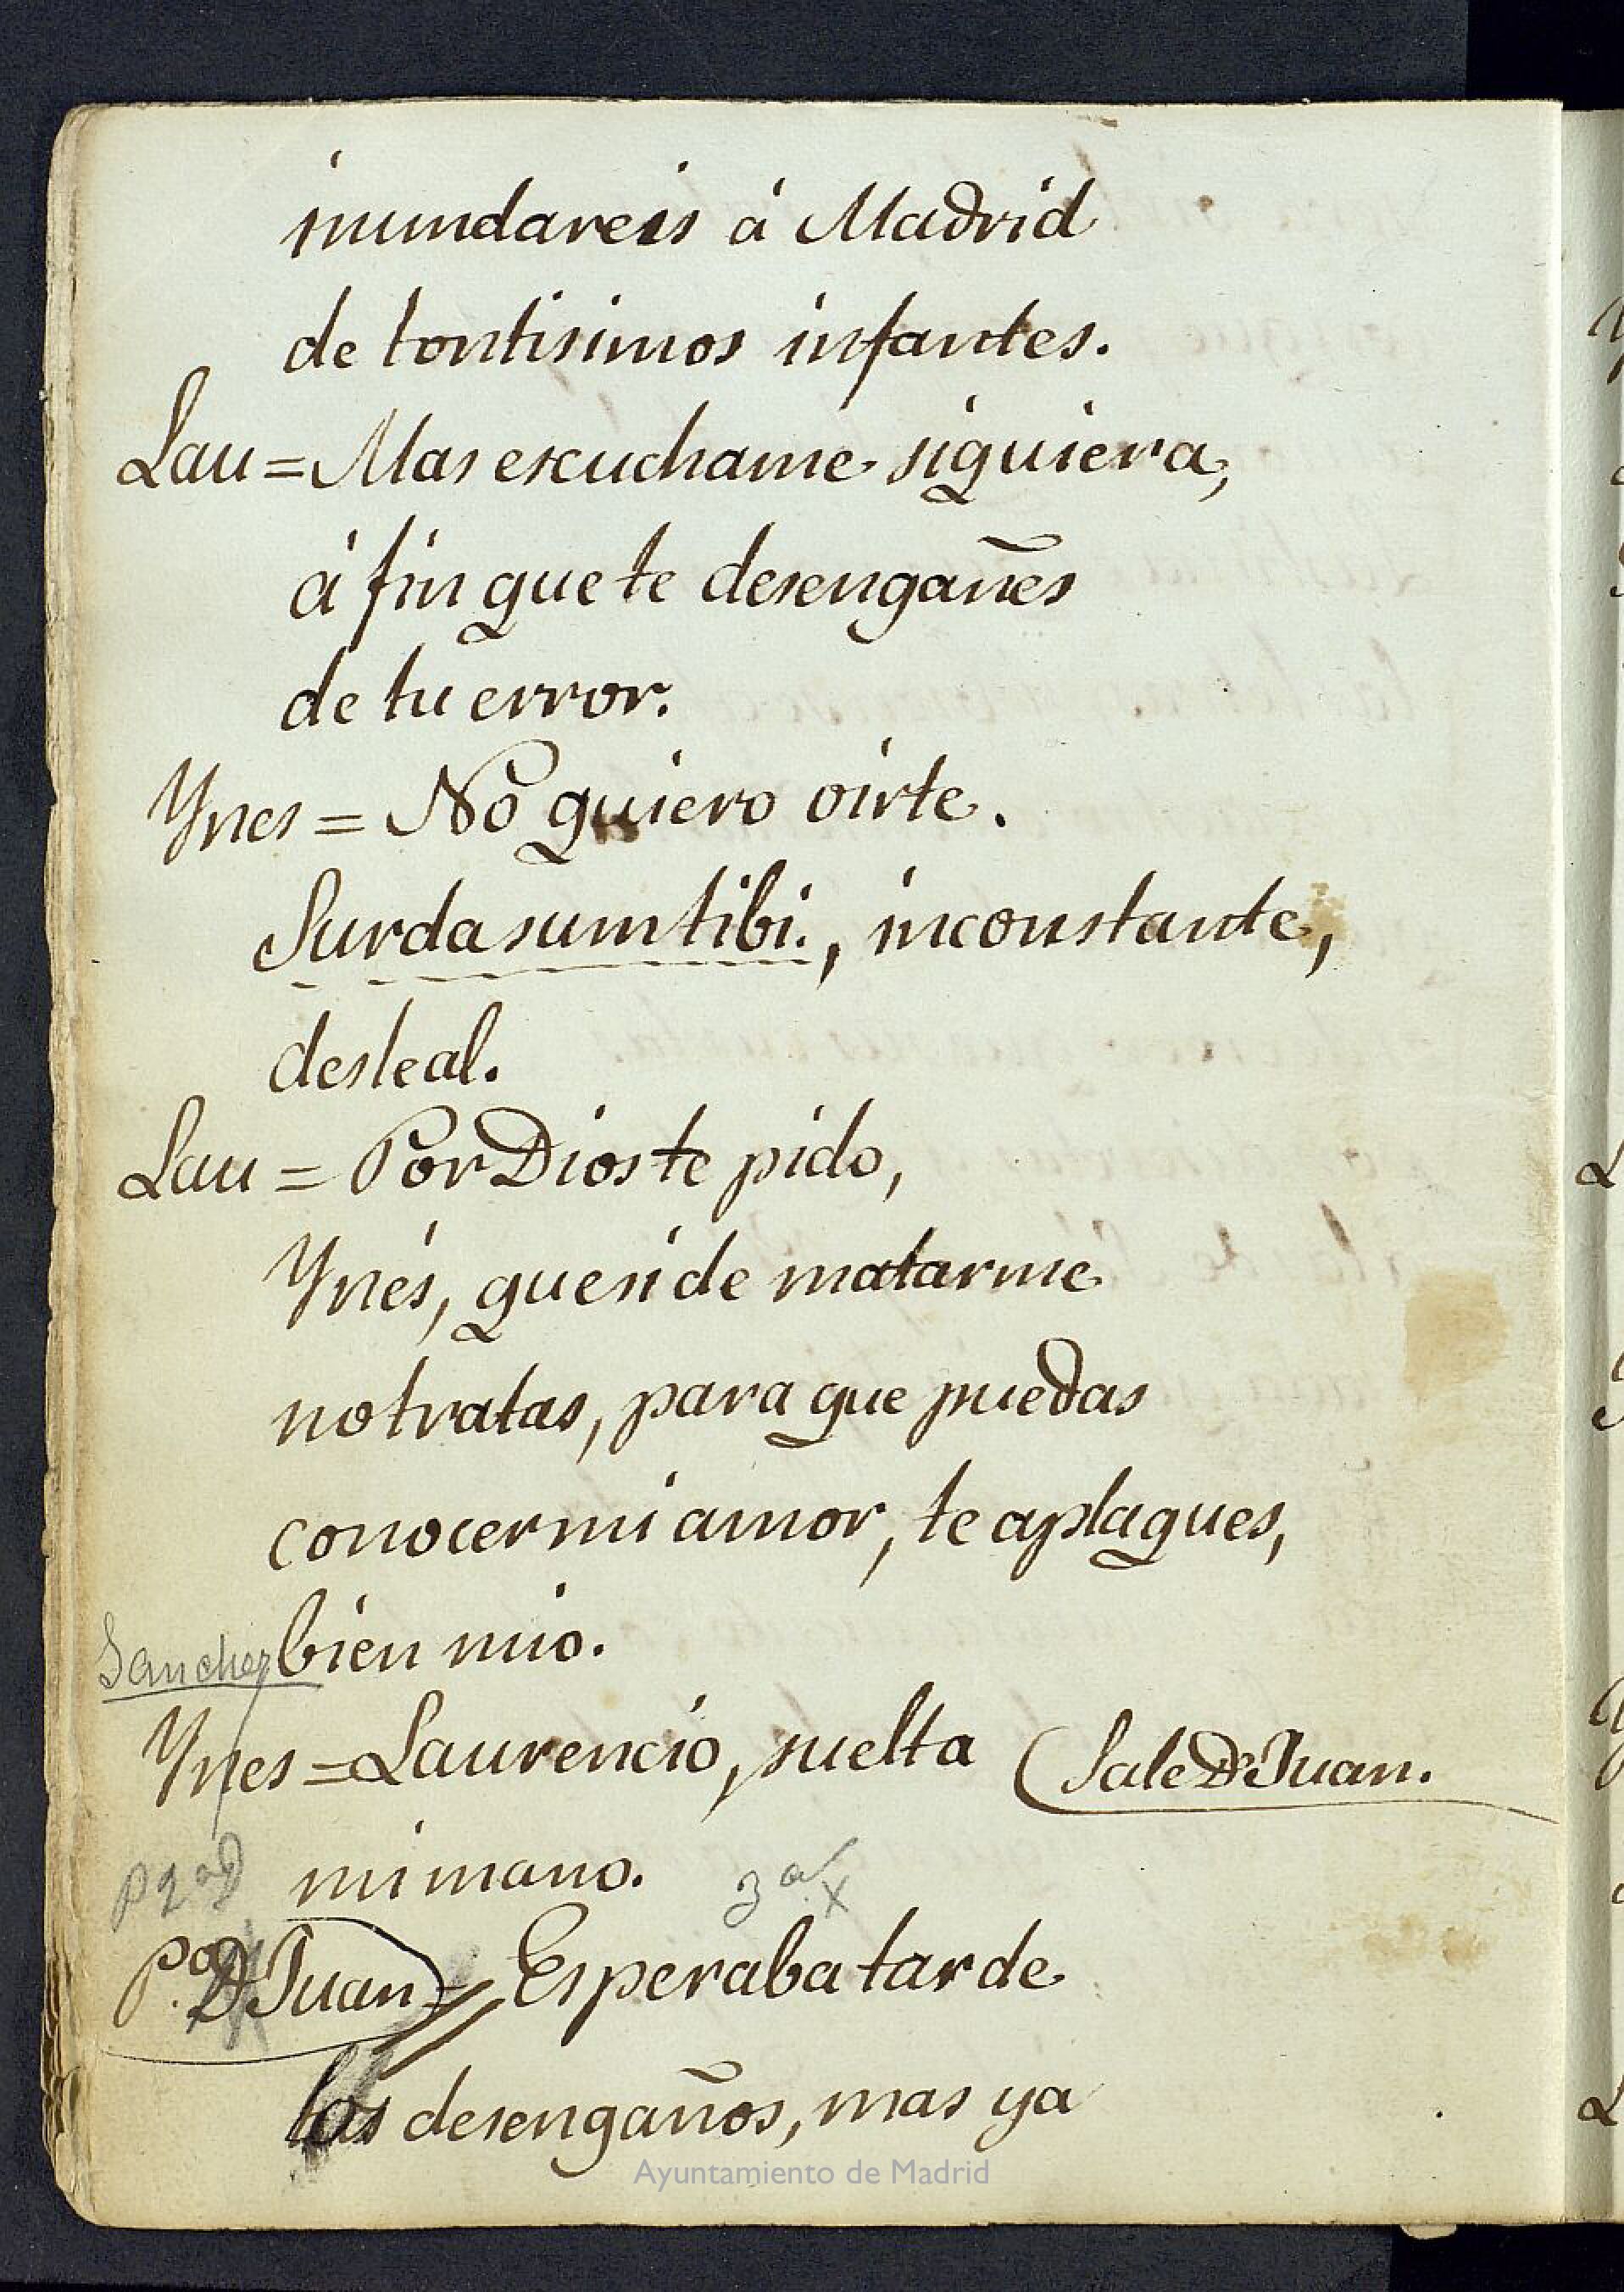 inundareis á Madrid
de tontisimos infantes.
Lau = Mas escuchame siquiera,
á fin que te desengañes
de tu error.
Ynes = No quiero oirte.
Surda sum tibi., inconstante,
desleal.
Lau = Por Dios te pido,
Ynés, que si de matarme
no tratas, para que puedas
conocer mi amor, te aplaques,
Sanchez bien mio.
Ynes = Laurencio, suelta (Sale Dn Juan.
mi mano. 3a X
Pa. D Juan = Esperaba tarde
los desengaños, mas ya
Ayuntamiento de Madrid